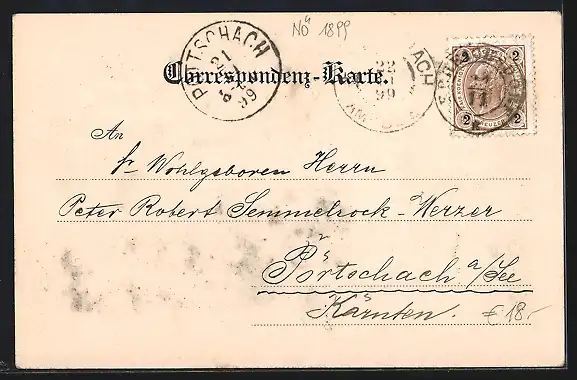 NÖ 1899
Correspondenz-Karte.
PÖRTSCHACH
21
99
22
99
AM
2 2
2 2
An
Sr Wohlgeboren Herrn
Peter Robert Semmelrock-Werzer
Pörtschach a/See
Kärnten.
€ 18.-